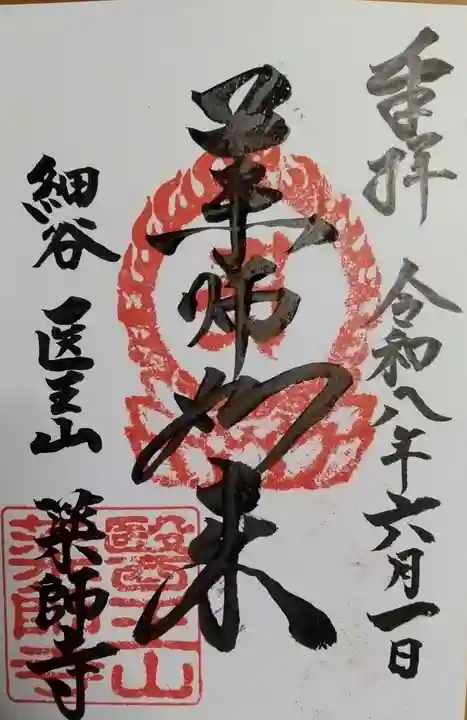 奉拝 令和八年六月一日
薬師如来
細谷 医王山 薬師寺
醫王山
薬師寺